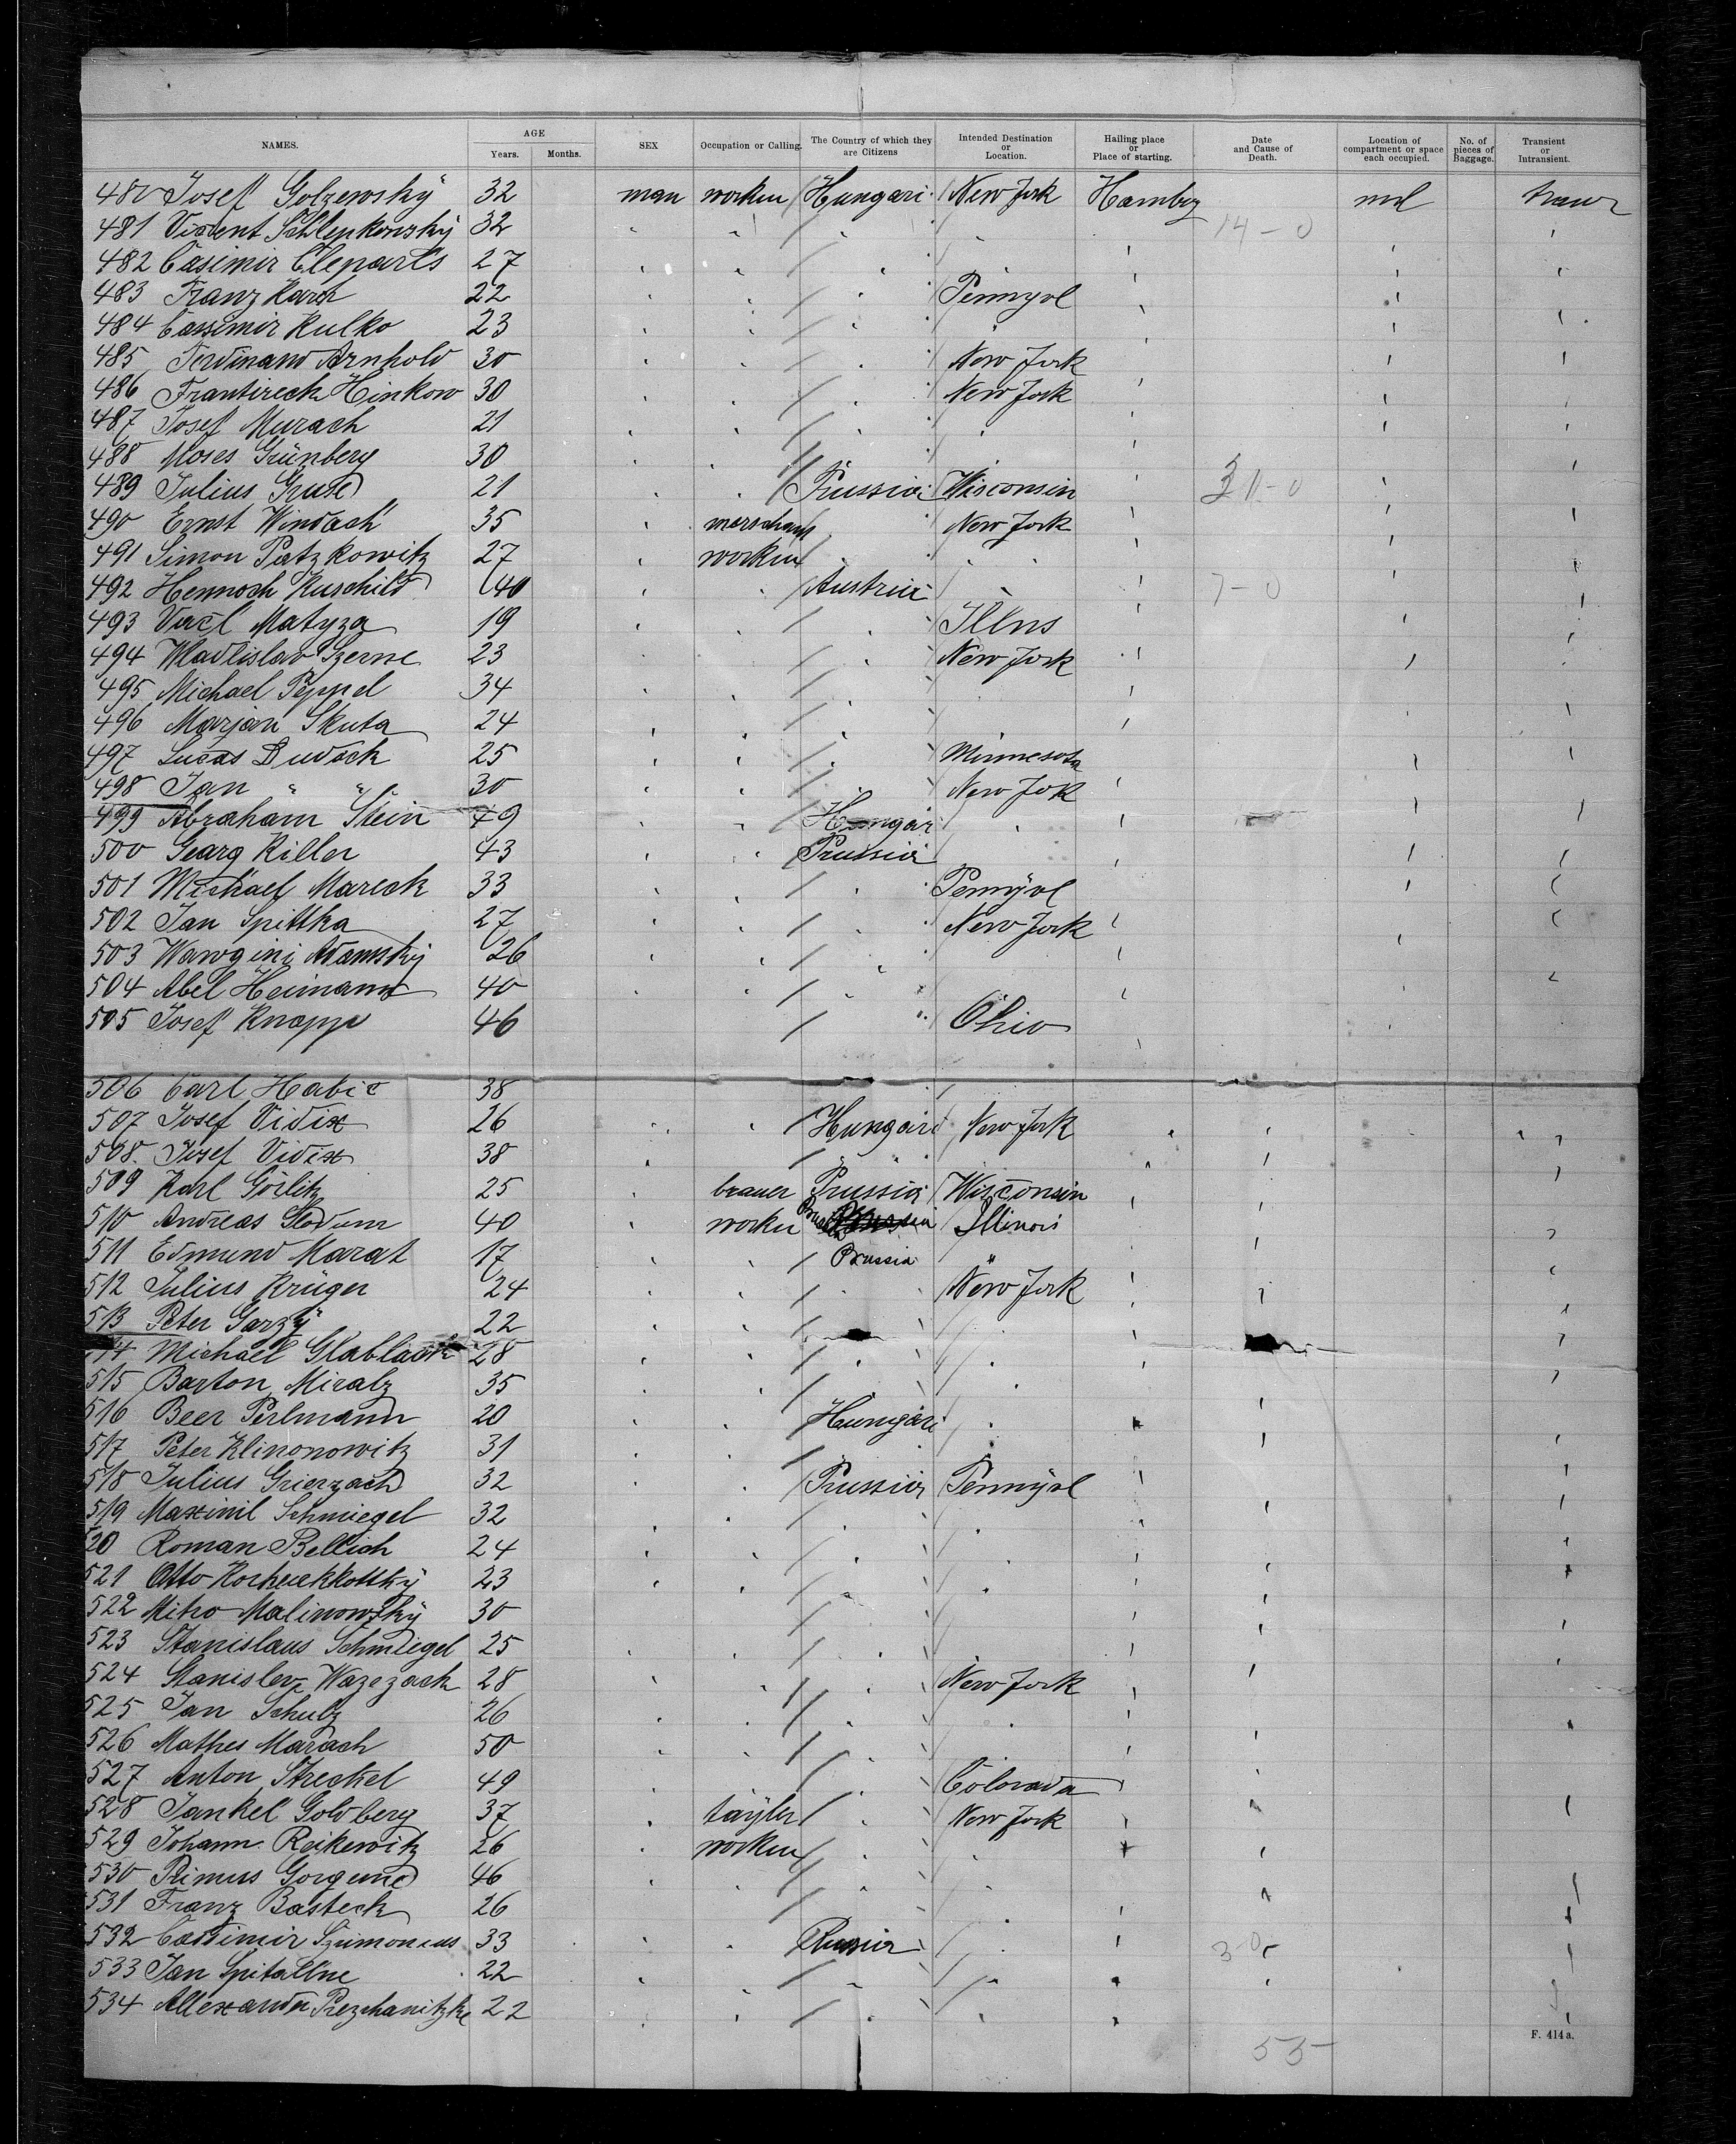 NAMES. AGE Years. Months. SEX Occupation or Calling. The Country of which they are Citizens Intended Destination or Location. Hailing place or Place of starting. Date and Cause of Death. Location of compartment or space each occupied. No. of pieces of Baggage. Transient or Intransient.
480 Josef Golzewsky 32 man worker Hungari New York Hambrg
481 Vincent Schlepkowsky 32 " " " " 14 - 0
482 Casimir Cleparts 27
483 Franz Karch 22 Pennyvl
484 Cassimir Kulko 23
485 Ferdinand Arnhold 30 New York
486 Frantireck Hinkow 30 New York
487 Josef Murach 21
488 Moses Grünberg 30
489 Julius Gruse 21 Prussia Wisconsin 3 11 - 0
490 Ernst Windach 35 New York
491 Simon Patzkowitz 27 worker
492 Hennoch Kuschild 40 Austria 7 - 0
493 Vacl Matyza 19 Illns
494 Wladislav Szerne 23 New York
495 Michael Peppel 34
496 Marjan Skuta 24
497 Lucas Dudack 25 Minnesota
498 Jan " " 30 New York
499 Abraham Stein 49 Hungari
500 Georg Killer 43 Prussia
501 Michael Mareck 33 Pennyvl
502 Jan Spittka 27 New York
503 Adamsky 26
504 Abel Heimann 40
505 Josef Knapp 46 Ohio
506 Carl Habic 38
507 Josef Vidix 26 Hungari New York
508 Josef Vidix 38
509 Karl Görlitz 25 brauer Prussia Wisconsin
510 Andreas 40 worker Illinois
511 Edmund Marat 17 Prussia "
512 Julius Krüger 24 New York
513 Peter Garzy 22
14 Michael Glablack 28
515 Barton Miralz 35
516 Beer Perlmann 20 Hungari
517 Peter Klinonowitz 31
518 Julius Grierzach 32 Prussia Pennyvl
519 Maximil Schmiegel 32
20 Roman Bellich 24
521 Otto 23
522 Miko Malinowsky 30
523 Stanislaus Schmiegel 25
524 Stanislev Wazezack 28 New York
525 Jan Schulz 26
526 Mathes Marach 50
527 Anton Streckel 49 Colorada
528 Jankel Goldberg 37 tayler New York
529 Johann Reikewitz 26 worker
530 Primus 46
531 Franz Basteck 26
532 Cassimir Szimonius 33 Russia 30
533 Jan Spitallne 22
534 Allexander 22
F. 414 a.
55